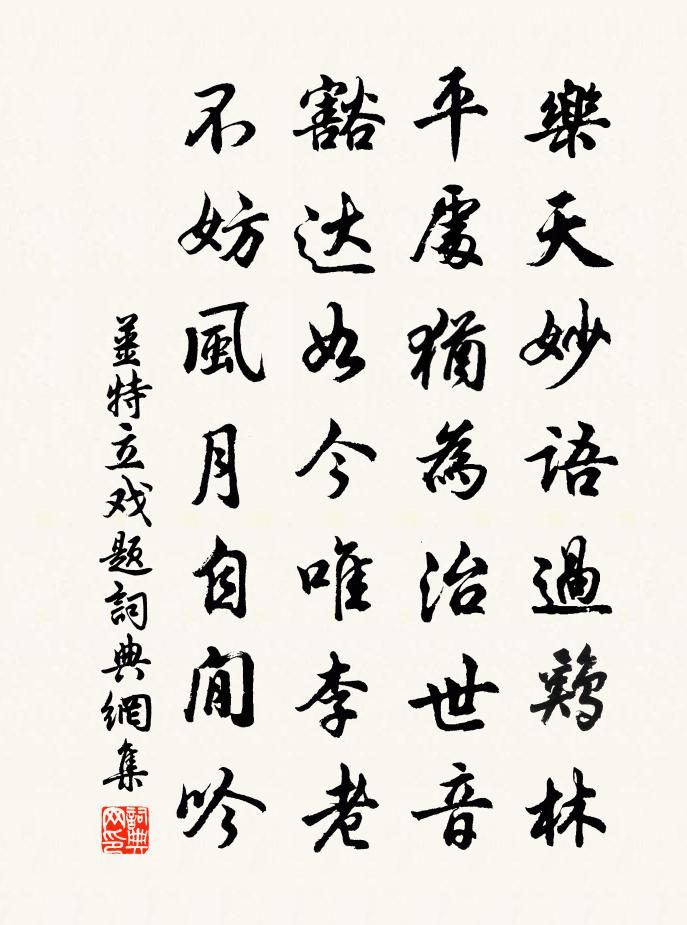 樂天妙語過鷄林
平處猶為治世音
豁达如今唯李老
不妨風月自閒吟
姜特立戏題詞典網集
詞典網印